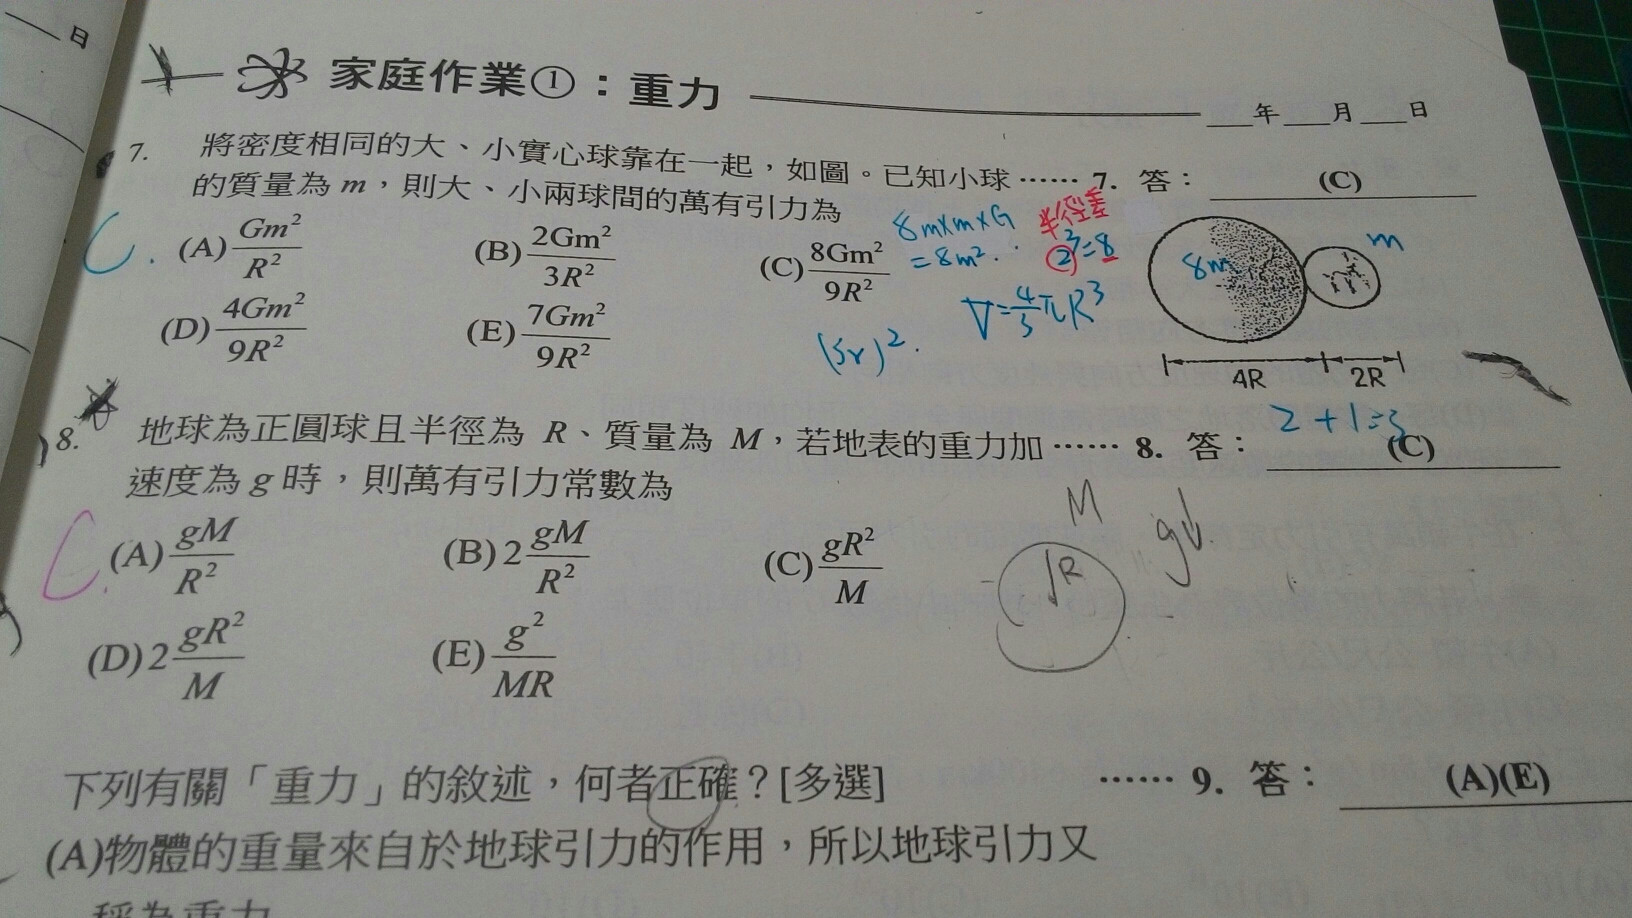 日
家庭作業①：重力
___年___月___日
7. 將密度相同的大、小實心球靠在一起，如圖。已知小球 …… 7. 答： (C)
的質量為 m，則大、小兩球間的萬有引力為
C.
(A) Gm²/R² (B) 2Gm²/3R² (C) 8Gm²/9R²
8m×m×G
=8m².
半徑差
2³=8
8m
m
(D) 4Gm²/9R² (E) 7Gm²/9R²
V=4/3πR³
4R 2R
2+1=3
8. 地球為正圓球且半徑為 R、質量為 M，若地表的重力加 …… 8. 答： (C)
速度為 g 時，則萬有引力常數為
C.
(A) gM/R² (B) 2 gM/R² (C) gR²/M
M
R
g↓
(D) 2 gR²/M (E) g²/MR
下列有關「重力」的敘述，何者正確？[多選] …… 9. 答： (A)(E)
(A)物體的重量來自於地球引力的作用，所以地球引力又
稱為重力